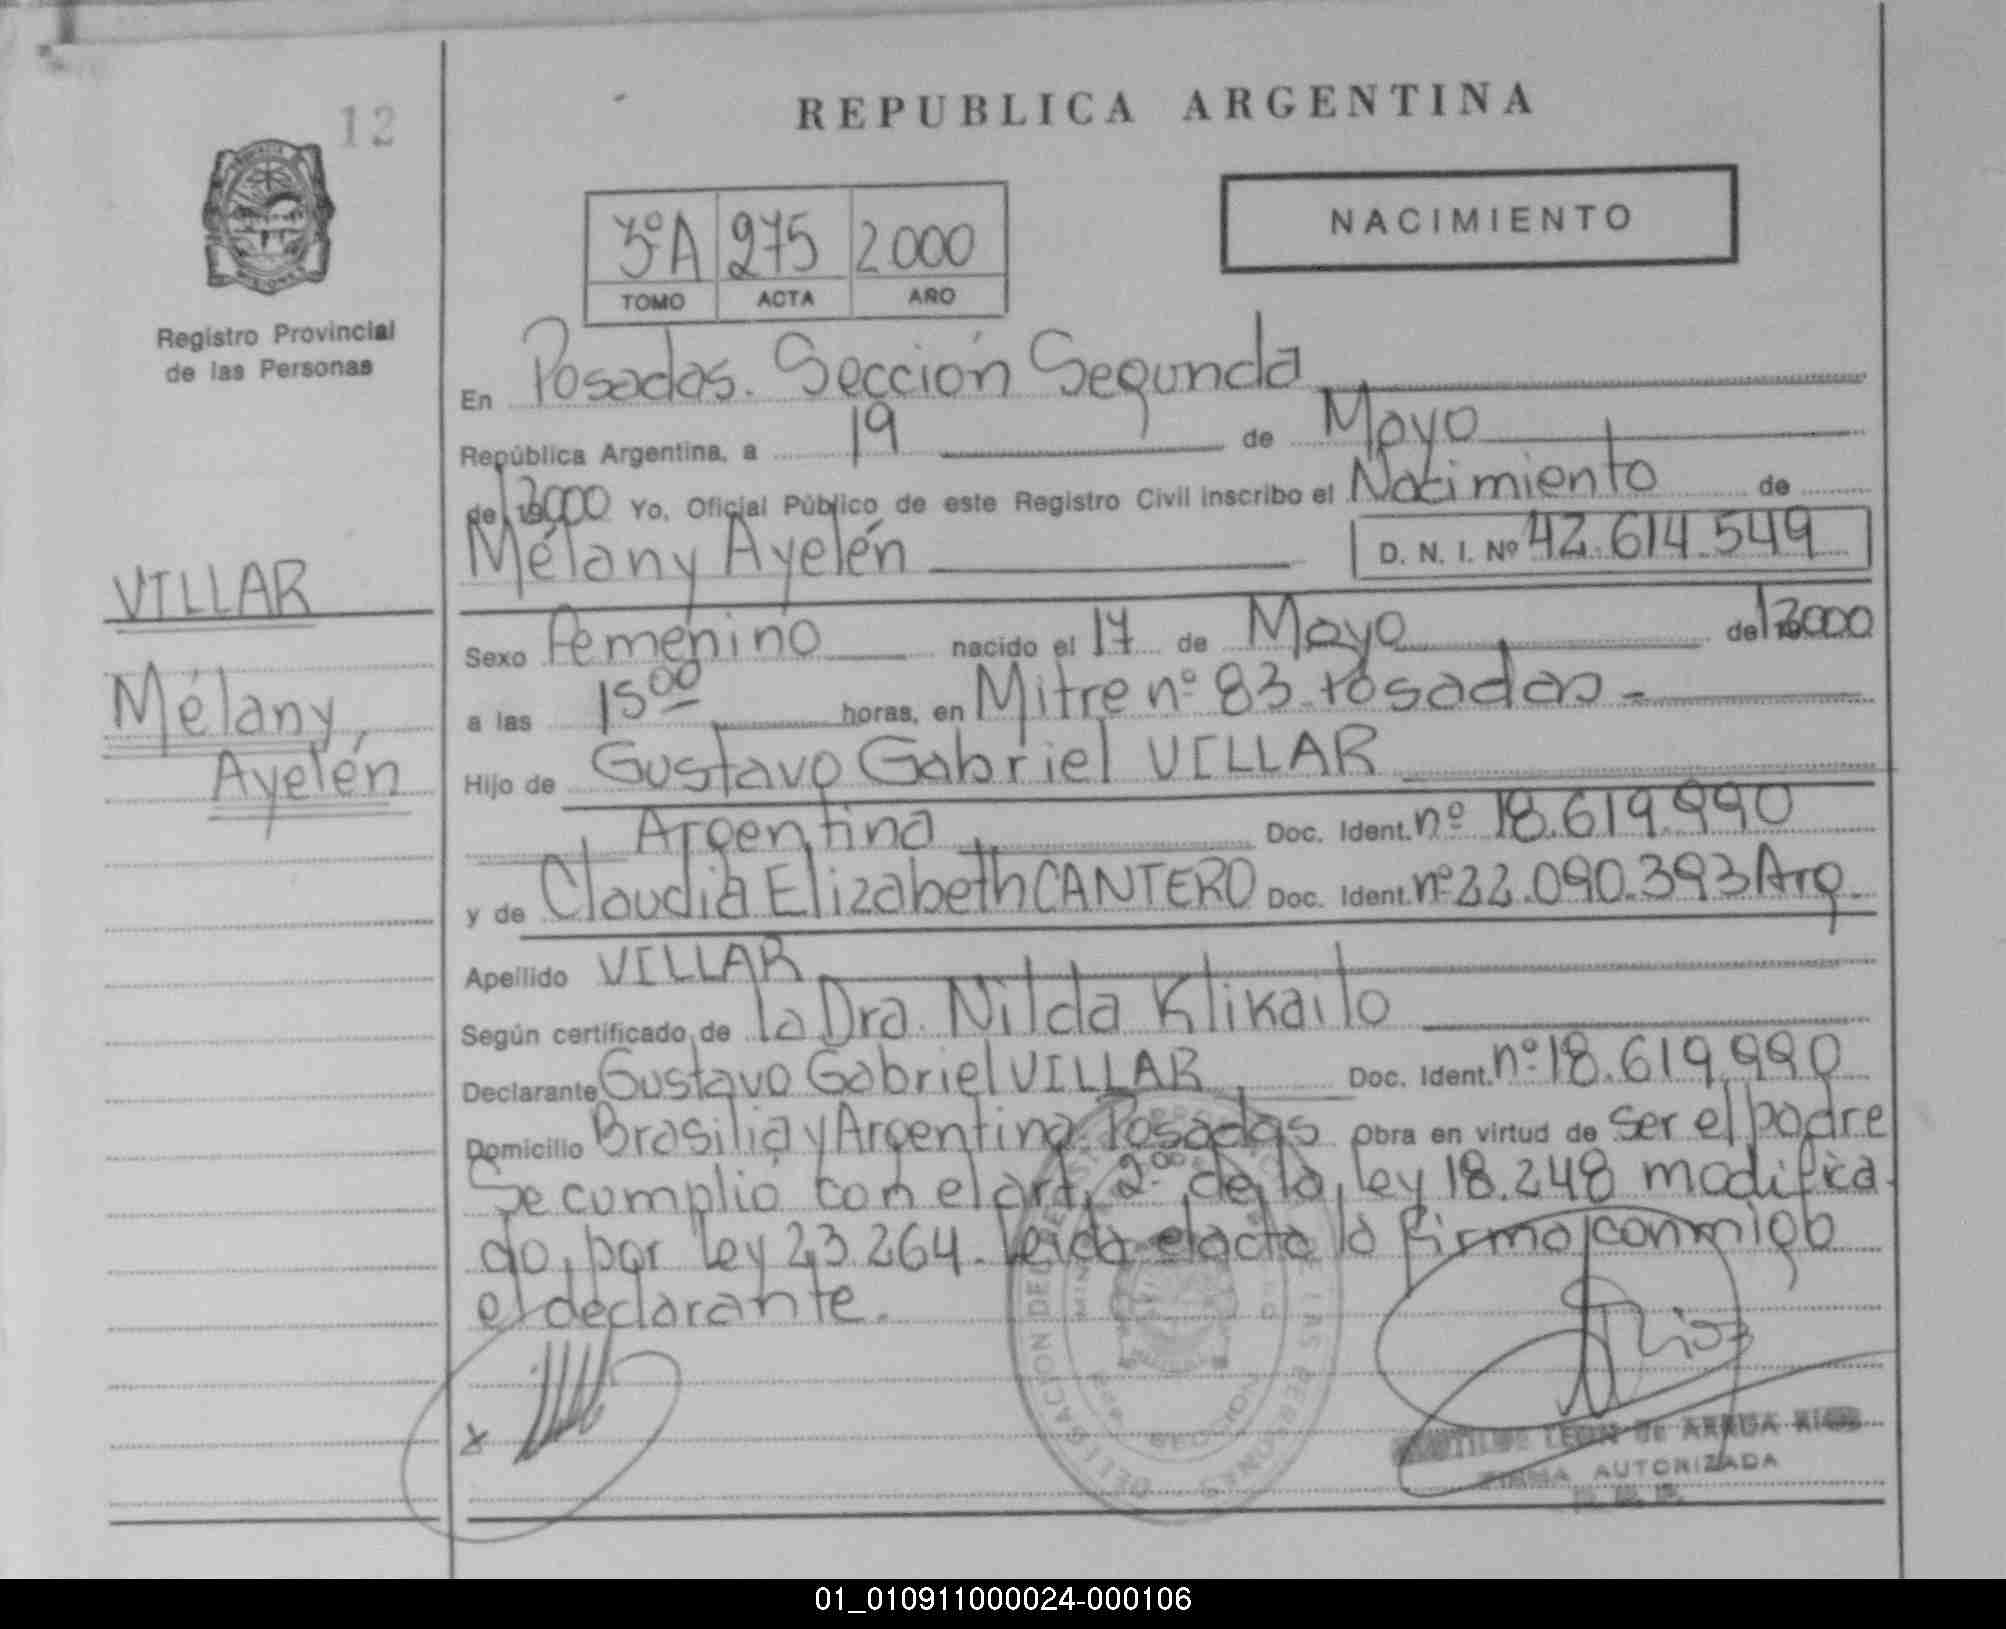 12
REPUBLICA ARGENTINA
NACIMIENTO
3ºA 275 2000
TOMO ACTA AÑO
Registro Provincial
de las Personas
En Posadas. Sección Segunda
República Argentina, a 19 de Mayo
de 2000 Yo, Oficial Público de este Registro Civil inscribo el Nacimiento de
Mélany Ayelén D. N. I. Nº 42.614.549
VILLAR
Mélany
Ayelén
Sexo Femenino nacido el 17 de Mayo de 2000
a las 15 00 horas, en Mitre nº 83. Posadas -
Hijo de Gustavo Gabriel VILLAR
Argentina Doc. Ident. nº 18.619.990
y de Claudia Elizabeth CANTERO Doc. Ident. nº 22.090.393 Arg.
Apellido VILLAR
Según certificado de la Dra. Nilda Klikailo
Declarante Gustavo Gabriel VILLAR Doc. Ident. nº 18.619.990
Domicilio Brasilia y Argentina. Posadas Obra en virtud de ser el padre
Se cumplió con el art. 2º de la ley 18.248 modifica-
do, por ley 23.264. Leida el acta la firma conmigo
el declarante.
x
Rios
LEON de ARRUA RIOS
FIRMA AUTORIZADA
DELEGACION DE LAS PERSONAS
SECCION
01_010911000024-000106